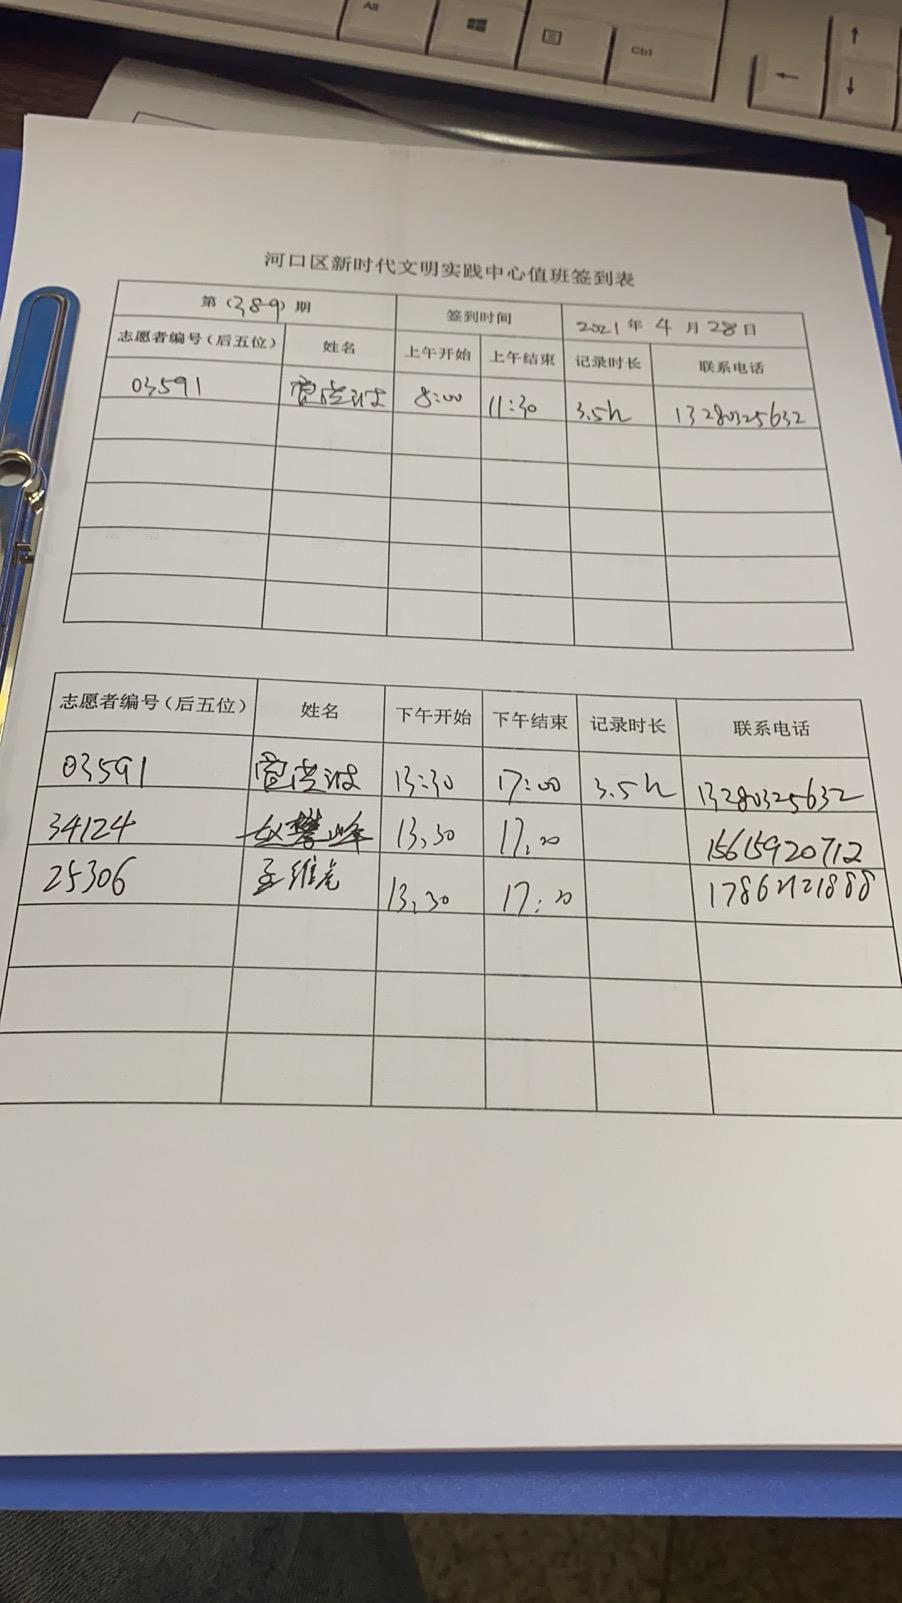 Alt
Ctrl
← ↑
↓
河口区新时代文明实践中心值班签到表
第（389）期 签到时间 2021年4月28日
志愿者编号（后五位） 姓名 上午开始 上午结束 记录时长 联系电话
03591 8:00 11:30 3.5h 13280325632
志愿者编号（后五位） 姓名 下午开始 下午结束 记录时长 联系电话
03591 13:30 17:00 3.5h 13280325632
34124 13.30 15615920712
25306 13.30